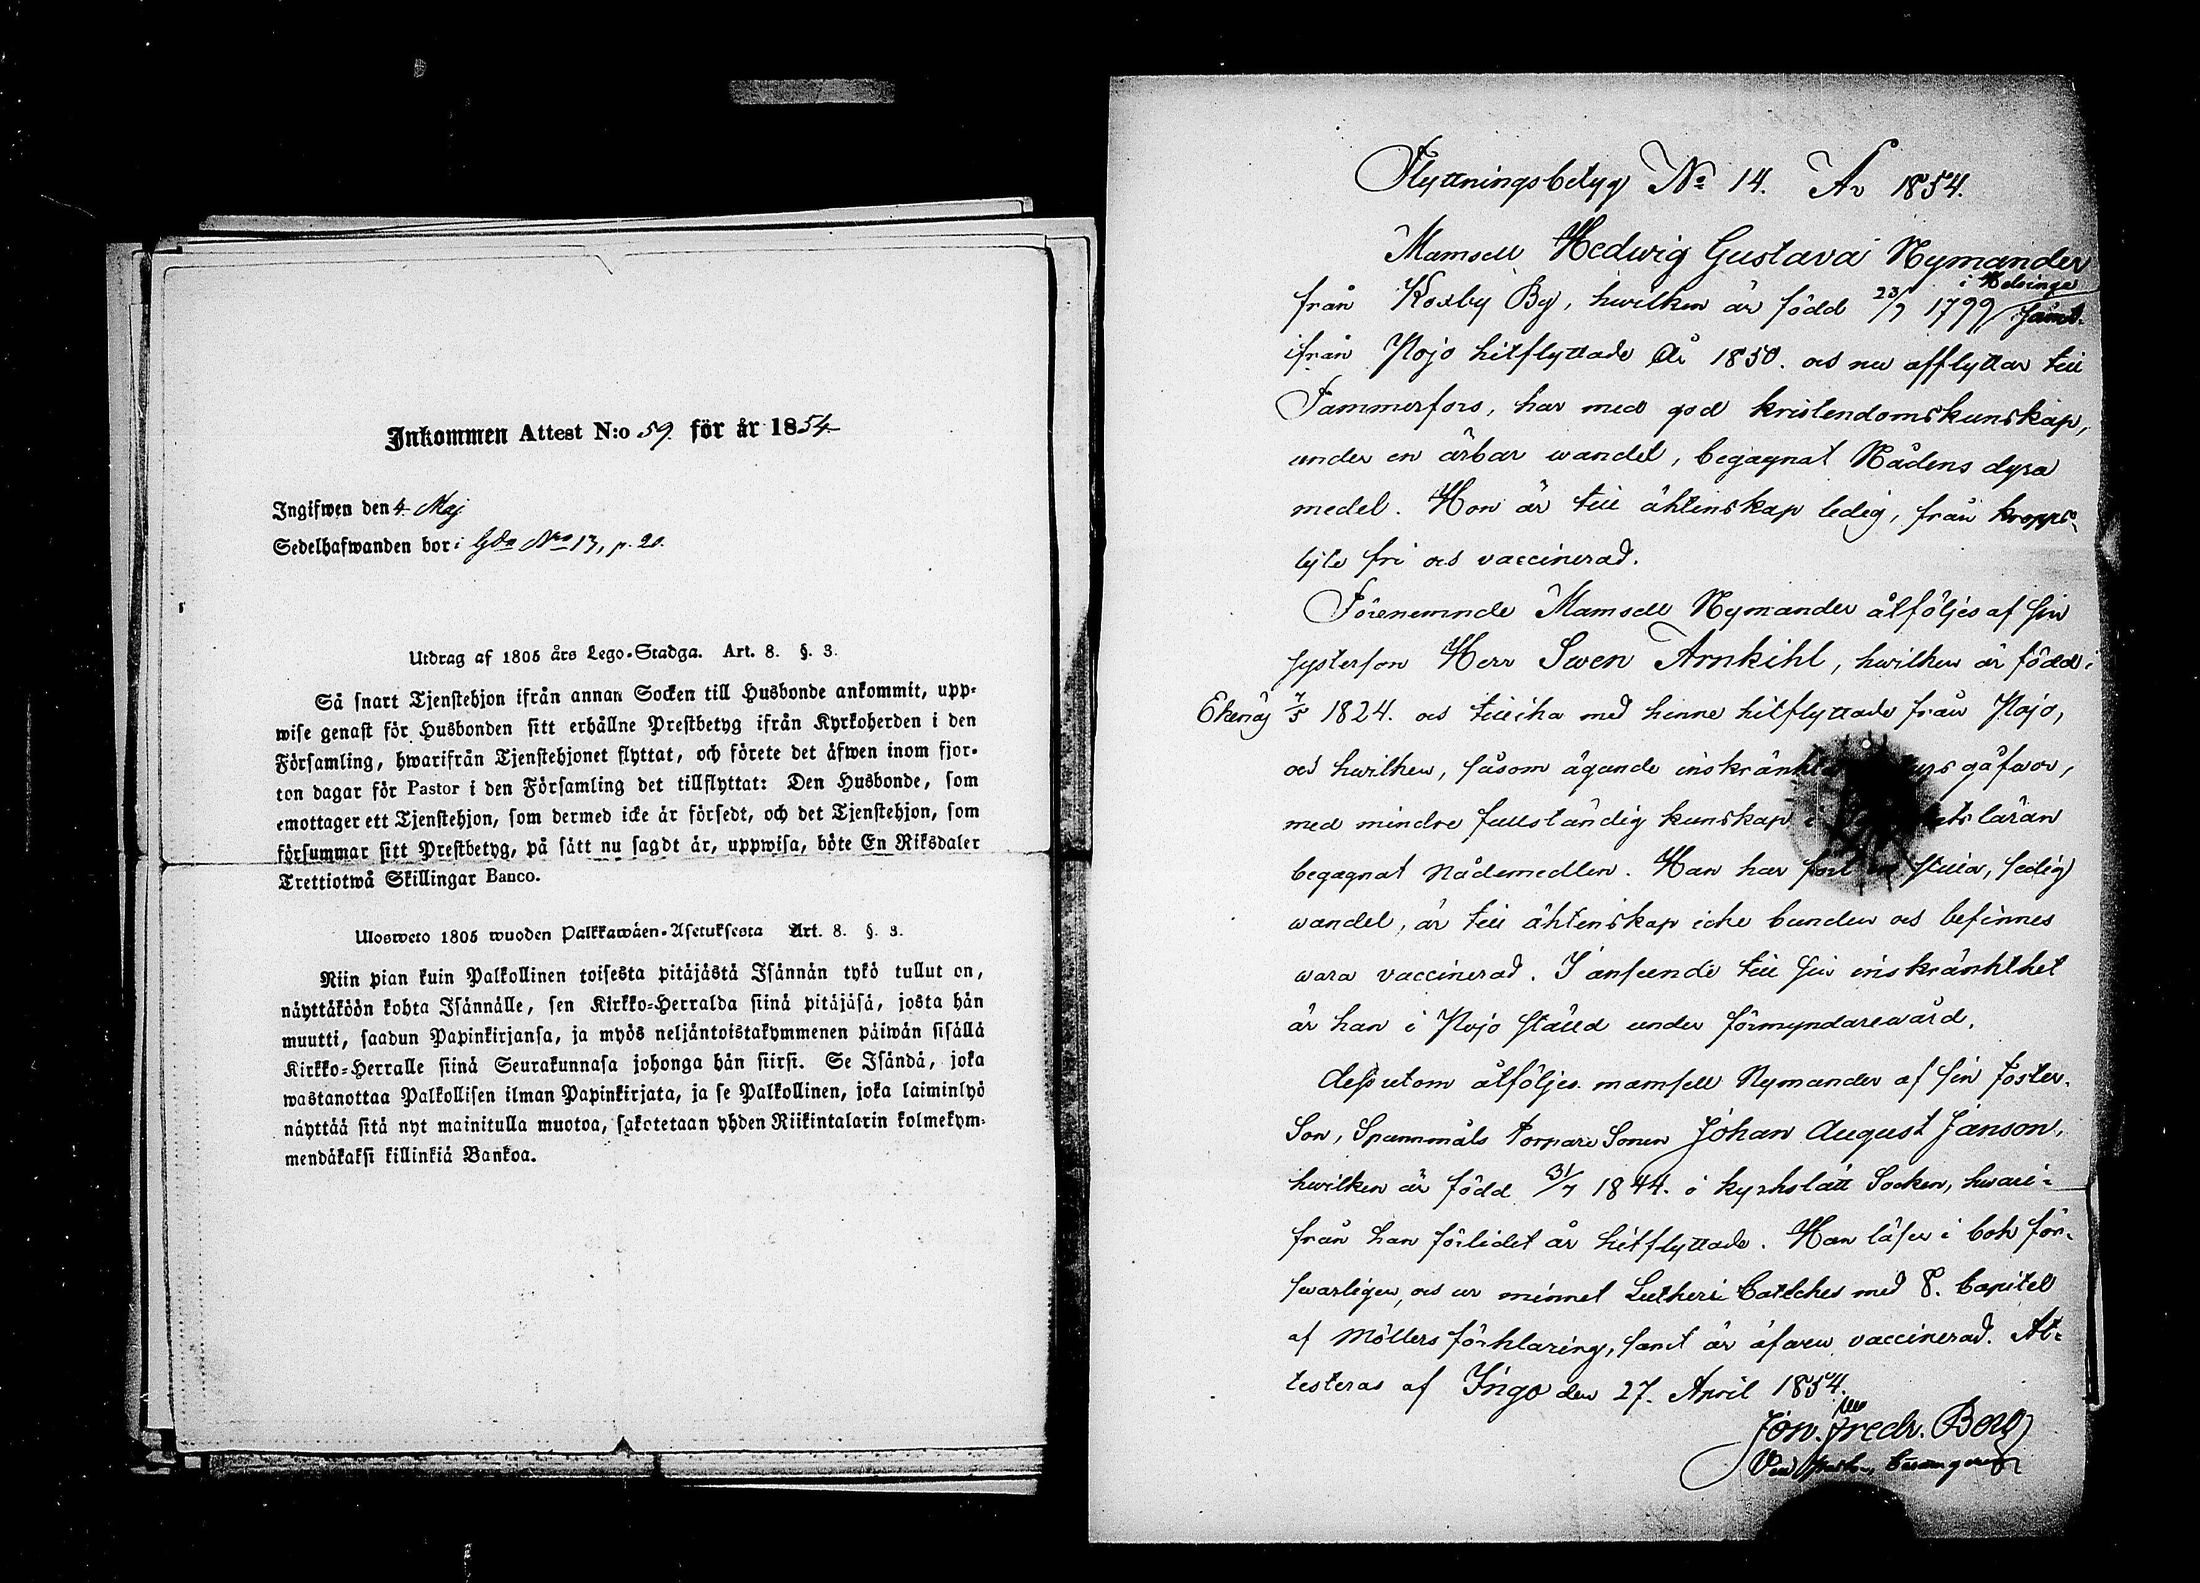 Inkommen Attest N:o 59. för år 1854
Ingifwen den 4. Maj
Sedelhafwanden bor i Gdn Nro 13, p. 20.
Utdrag af 1805 års Lego-Stadga. Art. 8. §. 3.
Så snart Tjenstehjon ifrån annan Socken till Husbonde ankommit, upp-
wise genast för Husbonden sitt erhållne Prestbetyg ifrån Kyrkoherden i den
Församling, hwarifrån Tjenstehjonet flyttat, och förete det äfwen inom fjor-
ton dagar för Pastor i den Församling det tillflyttat: Den Husbonde, som
emottager ett Tjenstehjon, som dermed icke är försedt, och det Tjenstehjon, som
försummar sitt Prestbetyg, på sätt nu sagdt är, uppwisa, böte En Riksdaler
Trettiotwå Skillingar Banco.
Ulosweto 1805 wuoden Palkkawäen-Asetuksesta Art. 8. §. 3.
Niin pian kuin Palkollinen toisesta pitäjästä Isännän tykö tullut on,
näyttäköön kohta Isännälle, sen Kirkko-Herralda siinä pitäjäsä, josta hän
muutti, saadun Papinkirjansa, ja myös neljäntoistakymmenen päiwän sisällä
Kirkko-Herralle siinä Seurakunnasa johonga hän siirsi. Se Isändä, joka
wastanottaa Palkollisen ilman Papinkirjata, ja se Palkollinen, joka laiminlyö
näyttää sitä nyt mainitulla muotoa, sakotetaan yhden Riikintalarin kolmekym-
mendäkaksi killinkiä Bankoa.
Flyttningsbetyg No 14. År 1854.
Mamsell Hedwig Gustava Nymander
i Helsinge
från Koxby By, hwilken är född 23/9 1799 samt
ifrån Nojo hitflyttade År 1850. och nu afflyttar till
Tammerfors, har med god kristendomskunskap,
under en ärbar wandel, begagnat Nådens dyra
medel. Hon är till äktenskap ledig, från kropps-
lyte fri och vaccinerad.
Förenemnde Mamsell Nymander åtföljes af sin
systerson Herr Swen Arnkihl, hwilken är född i
Ekenäs 7/5 1824. och tillika med henne hitflyttade från Nojo,
och hwilken, såsom ägande inskränkta gåfwor,
med mindre fullständig kunskap i läran
begagnat nådemedlen. Han har fört en stilla, sedlig
wandel, är till äktenskap icke bunden och befinnes
wara vaccinerad. I anseende till sin inskränkthet
är han i Nojo ställd under förmyndarewård.
Dessutom åtföljes mamsell Nymander af sin foster-
Son, Spannmåls torpare Sonen Johan August Janson,
hwilken är född 31/7 1844. i Kyrkslätt Socken, hwari-
från han förlidet år hitflyttade. Han läser i bok för-
swarligen, och ur minnet Lutheri Catches med 8. Capitel
af Möllers förklaring, samt är äfwen vaccinerad. At-
testeras af Ingo den 27. April 1854.
Jon. Fredr. Berg